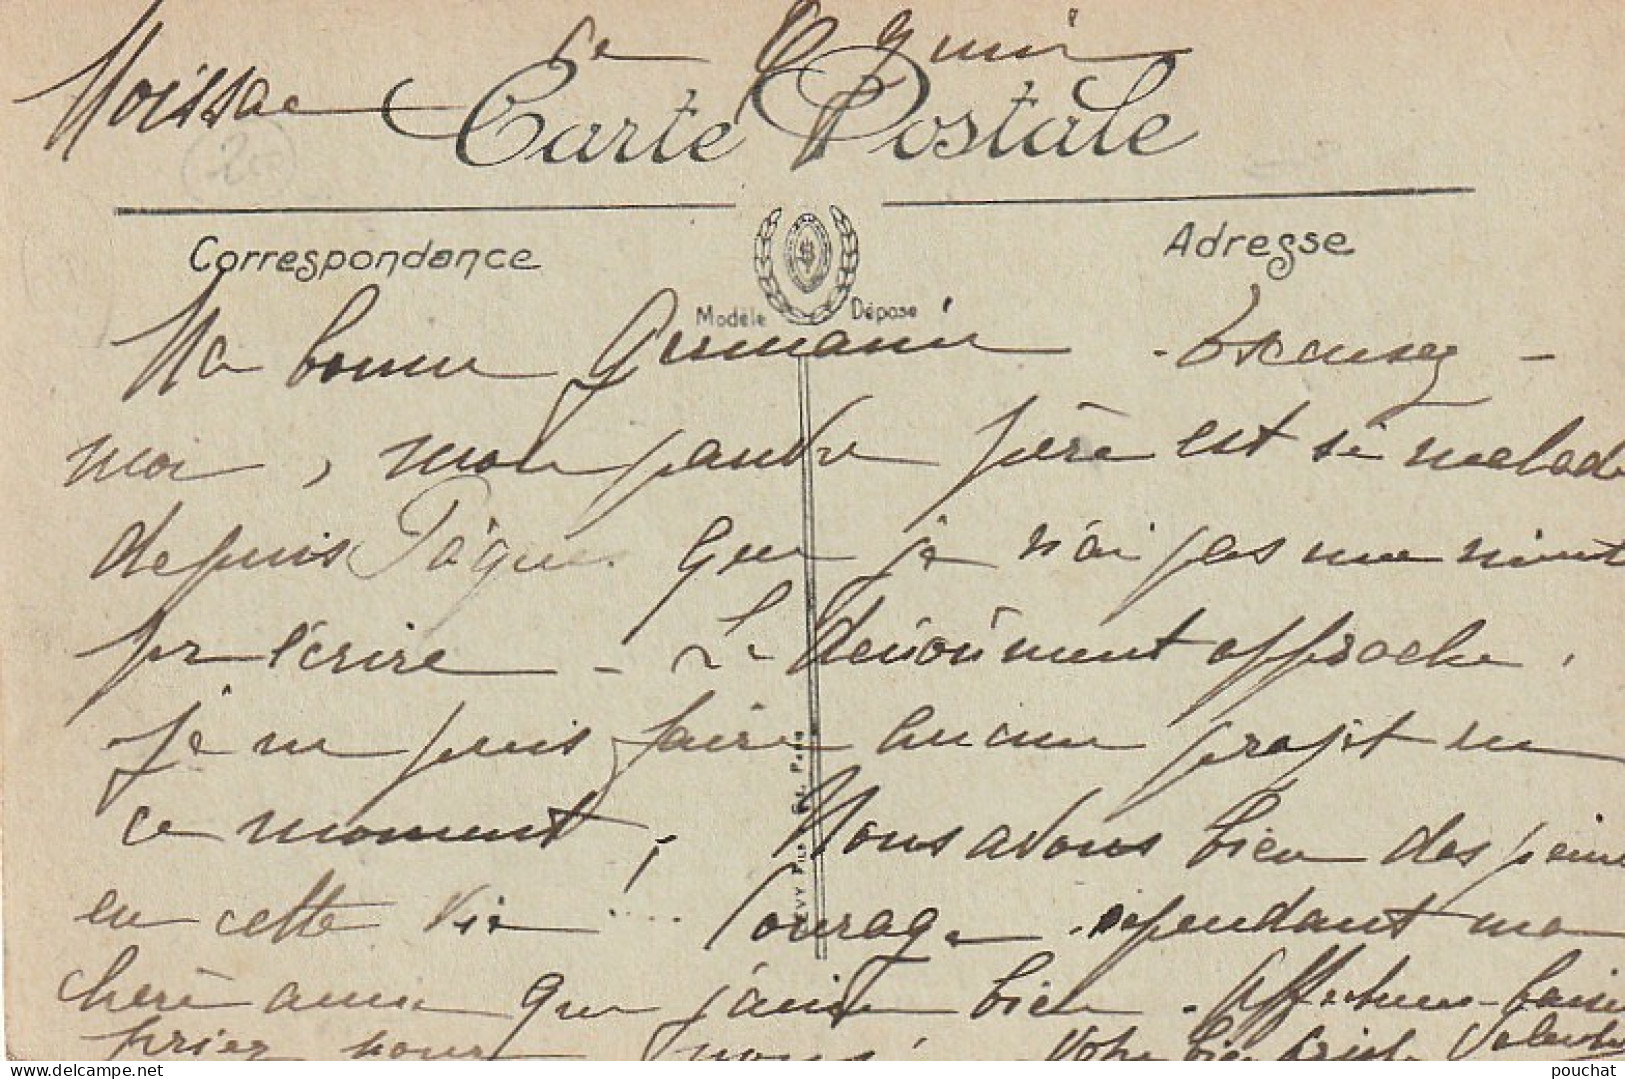 Moissac le 9 juin
Carte Postale
20
Correspondance
Adresse
Modèle Déposé
Ma bonne Germaine - Excusez-
moi, mon pauvre père est si malade
depuis Pâques que je n'ai pas un minut
pr l'écrire - Le dénoûment approche,
je ne puis faire aucun projet en
ce moment, Nous avons bien des peines
en cette vie .... Courage cependant ma
chère amie que j'aime bien. Affectueux baisers
priez pour nous! Votre bien triste
LÉVY Fils et Cie, Paris
pouchat